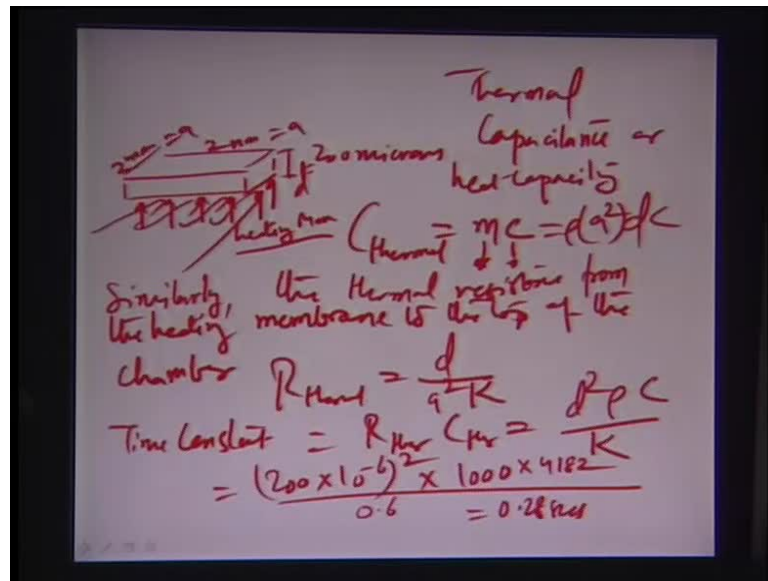 Thermal
Capacitance or
heat capacity
2mm = a
2mm = a
d
200 microns
heating Mem
C thermal = m c = ρ(a²)dc
Similarly, the thermal resistance from
the heating membrane to the top of the
chamber
R thermal = d / a² K
Time Constant = R ther C ther = d² ρ C / K
= (200 × 10⁻⁶)² × 1000 × 4182 / 0.6 = 0.28 secs